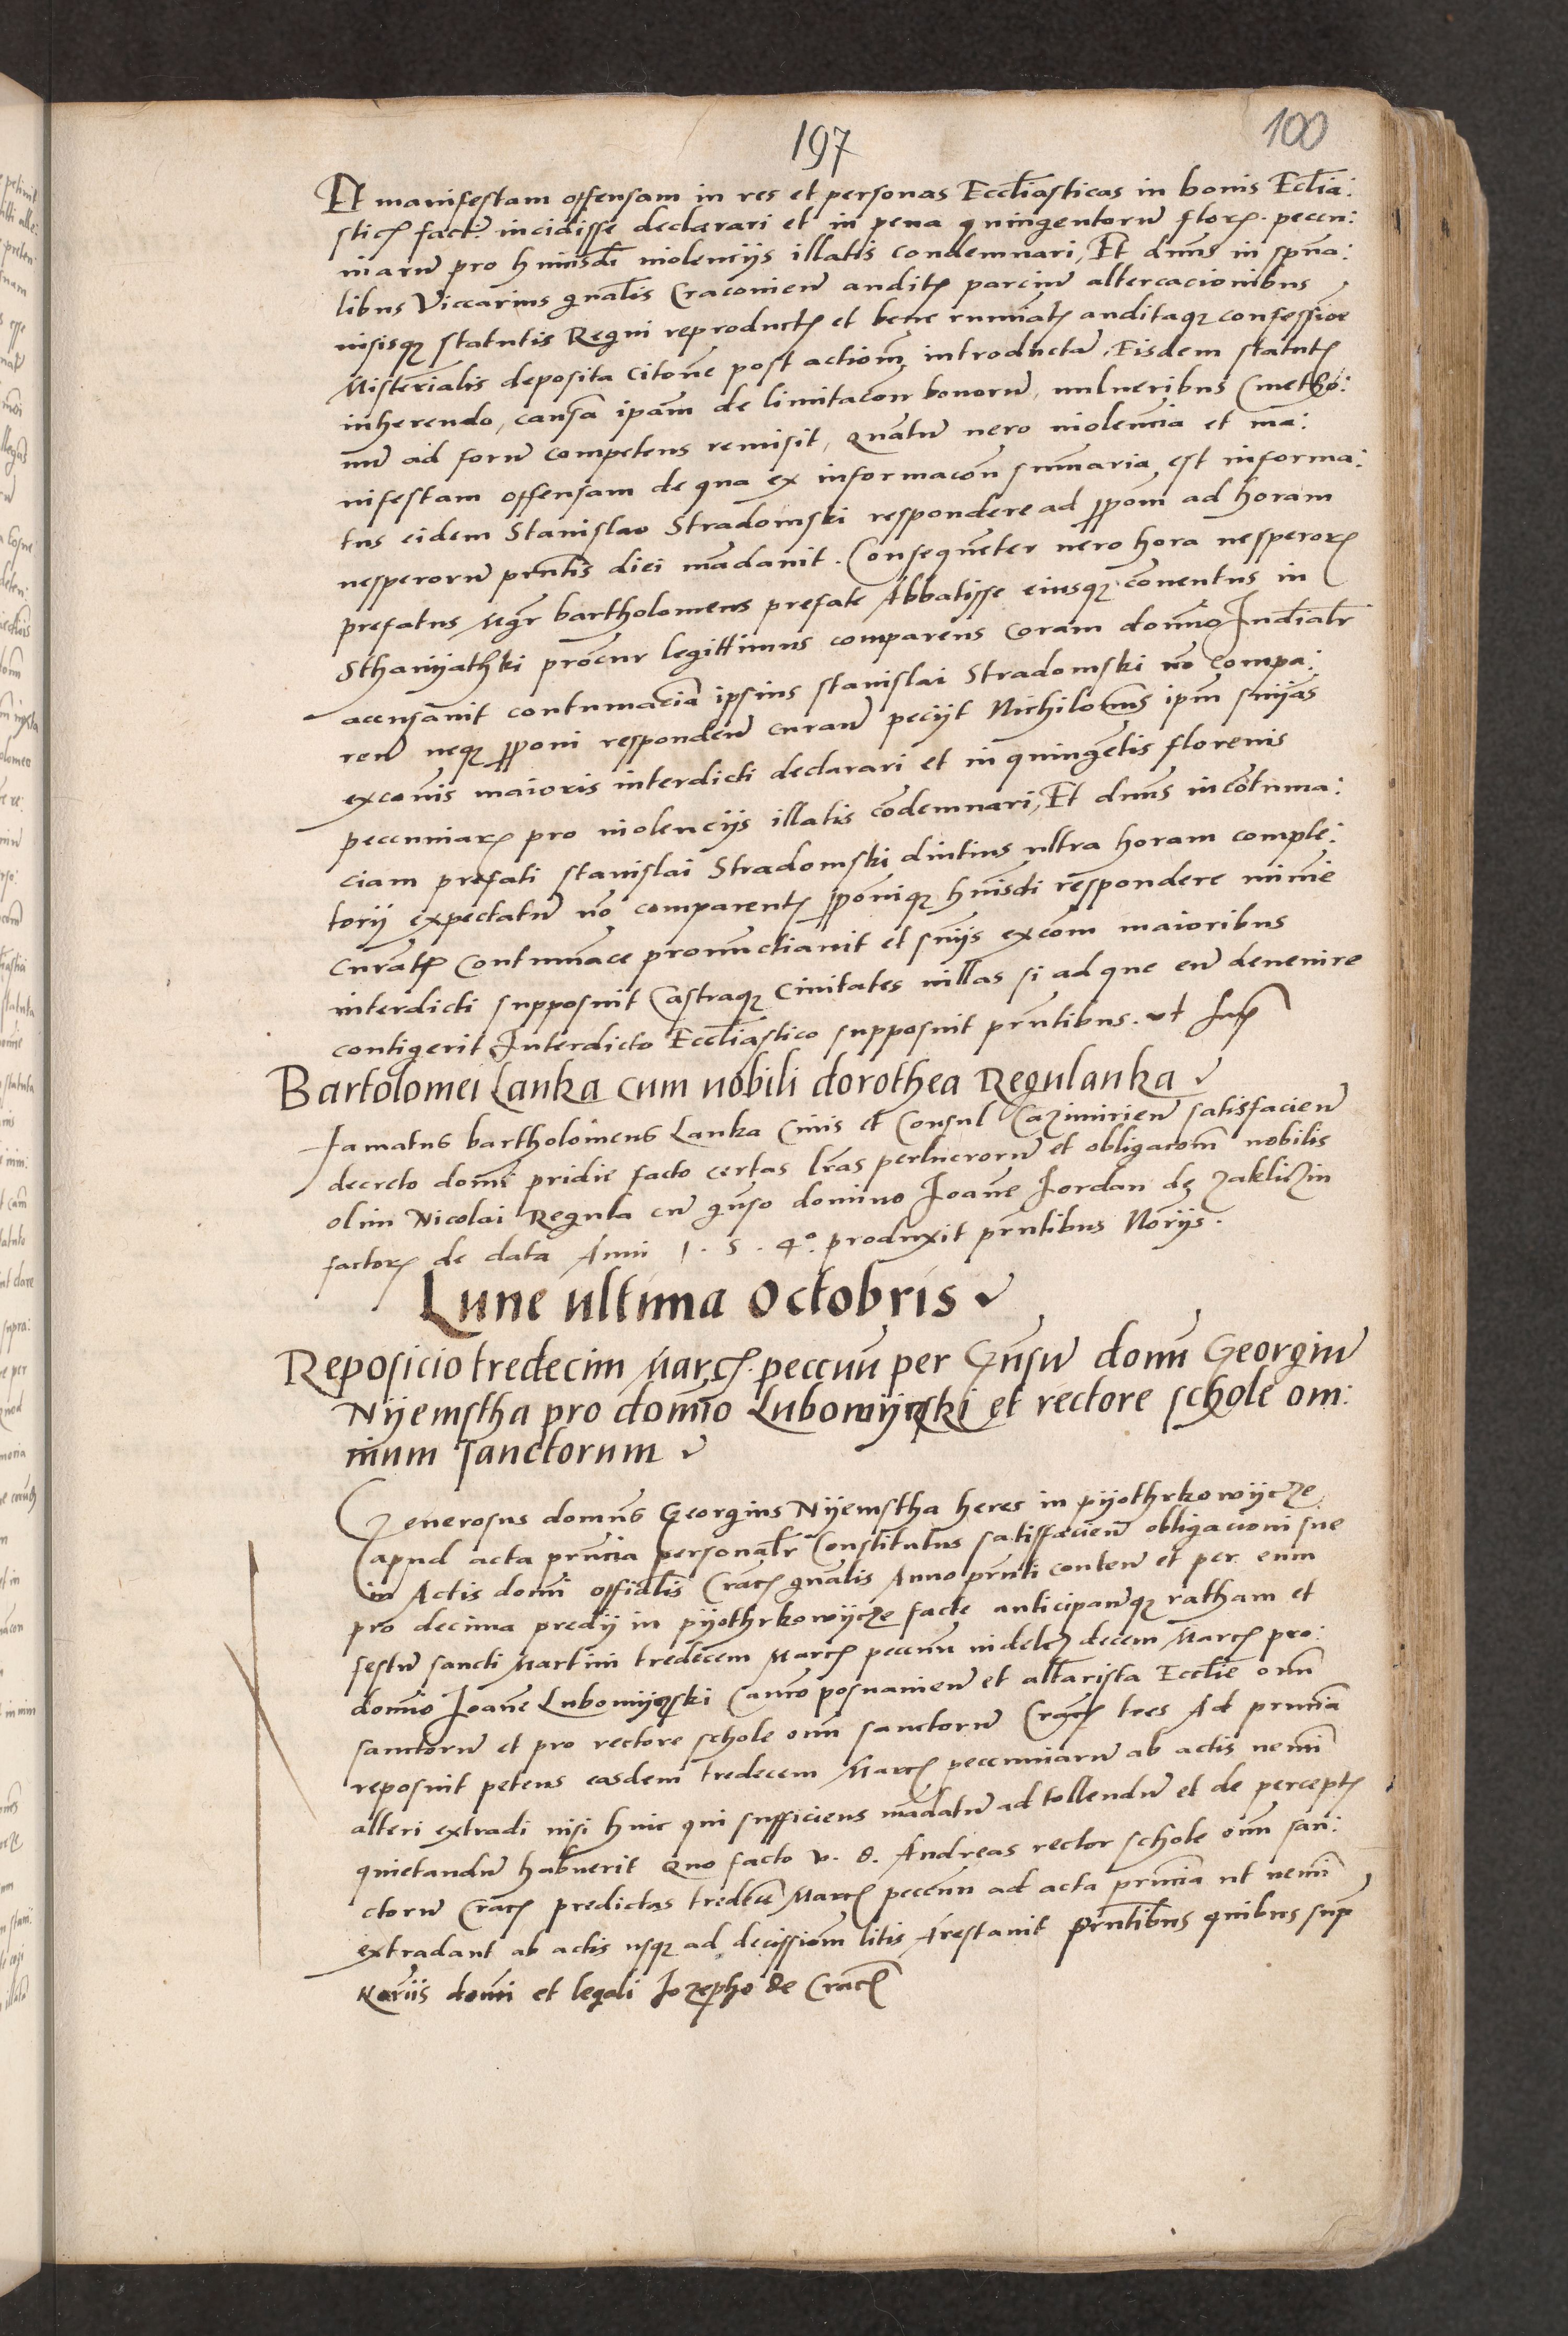 197
100
Et manifestam offensam in res et personas Eccl̃iasticas in bonis Ecl̃ia:
sticꝭ fact̃ incidisse declarari et in pena quingentorũ florꝭ. peccu:
niarũ pro huiusdi violencijs illatis condemnari, Et dnus in spũa:
libus Viccarius gnalis Cracovień auditꝭ parciũ altercacionibus
visisqꝫ statutis Regni reproductꝭ et bene ruminatꝭ auditaqꝫ confessioe
Misterialis deposita citoñe post actiom̃ introductã, Eisdem statutꝭ
inherendo, causã ipam̃ de limitacoñ bonorũ, vulneribus Cmetho:
nũ ad forũ competens remisit, Quãtũ vero violencia et ma:
nifestam offensam de qua ex informacoñ sum̃aria est informa:
tus eidem Stanislao Stradomski respondere ad ꝓpom̃ ad horam
vesperorũ prñtis diei mãdavit. Consequẽter vero hora vesperorꝭ
prefatus Mgr̃ bartholomeus prefate Abbatisse eiusqꝫ conventus in
Sthanijathki procur̃ legittimus comparens coram domĩo Iudicialr̃
accusavit contumaciã ipsius stanislai Stradomski nõ compa:
reñ neqꝫ ꝓponi respondeñ curañ peciyt Nichilomĩs ipm̃ snijas
excoñis maioris interdicti declarari et in quingẽtis florenis
peccuniarꝭ pro violencijs illatis cõdemnari, Et dnus incõtuma:
ciam prefati stanislai Stradomski diutius ultra horam comple:
torij expectatũ nõ comparentꝭ ꝓponiqꝫ huisdi respondere mĩme
curãtꝭ Contumace pronunctiavit et snijs excom̃ maioribus
interdicti supposuit Castraqꝫ Civitates villas si ad que eũ devenire
contigerit Interdicto Eccl̃iastico supposuit prñtibus. ut supꝭ
Bartolomei Lanka cum nobili dorothea Regulanka
Famatus bartholomeus Lanka Civis et Consul Cazimirień satisfacień
decreto domĩ pridie facto certas lr̃as perlucrorũ et obligacom̃ nobilis
olim Nicolai Regula cũ gnso domino Joañe Jordan de zakliczin
factorꝭ de data Anni 1. 5. 4°. produxit prñtibus Norijs.
Lune ultima Octobris
Reposicio tredecim Marcꝭ. peccuũ per Gnsũ domũ Georgiũ
Nijemstha pro domĩo Lubowijeski et rectore schole om:
nium Sanctorum
Generosus domñs Georgius Nijemstha heres in pijothrkowijcze
apud acta prñcia personalr̃ Constitutus satisfacień obligacioni sue
in Actis domĩ offialis Cracꝭ gnalis Anno prñti conteñ et per eum
pro decima predij in pijothrkowijcze facte anticipañqꝫ ratham et
festũ sancti Martini tredecem Marcꝭ peccuũ videlcꝫ decem Marcꝭ pro:
domĩo Joañe Lubowijeski Canõ posnanień et altarista Eccl̃ie om̃
sanctorũ et pro rectore schole om̃ sanctorũ Cracꝭ tres Ad prñcia
reposuit petens easdem tredecem Marcꝭ peccuniarũ ab actis nemĩ
alteri extradi nisi huic qui sufficiens mãdatũ ad tollendũ et de perceptꝭ
quietandũ habuerit Quo facto v. d. Andreas rector schole om̃ san:
ctorũ Cracꝭ predictas tredecẽ Marcꝭ peccuũ ad acta prñcia ut nemĩ
extradant ab actis usqꝫ ad decissiom̃ litis Arestavit prñtibus quibus supꝭ
Norijs domĩ et legali Jozepho de Cracꝭ